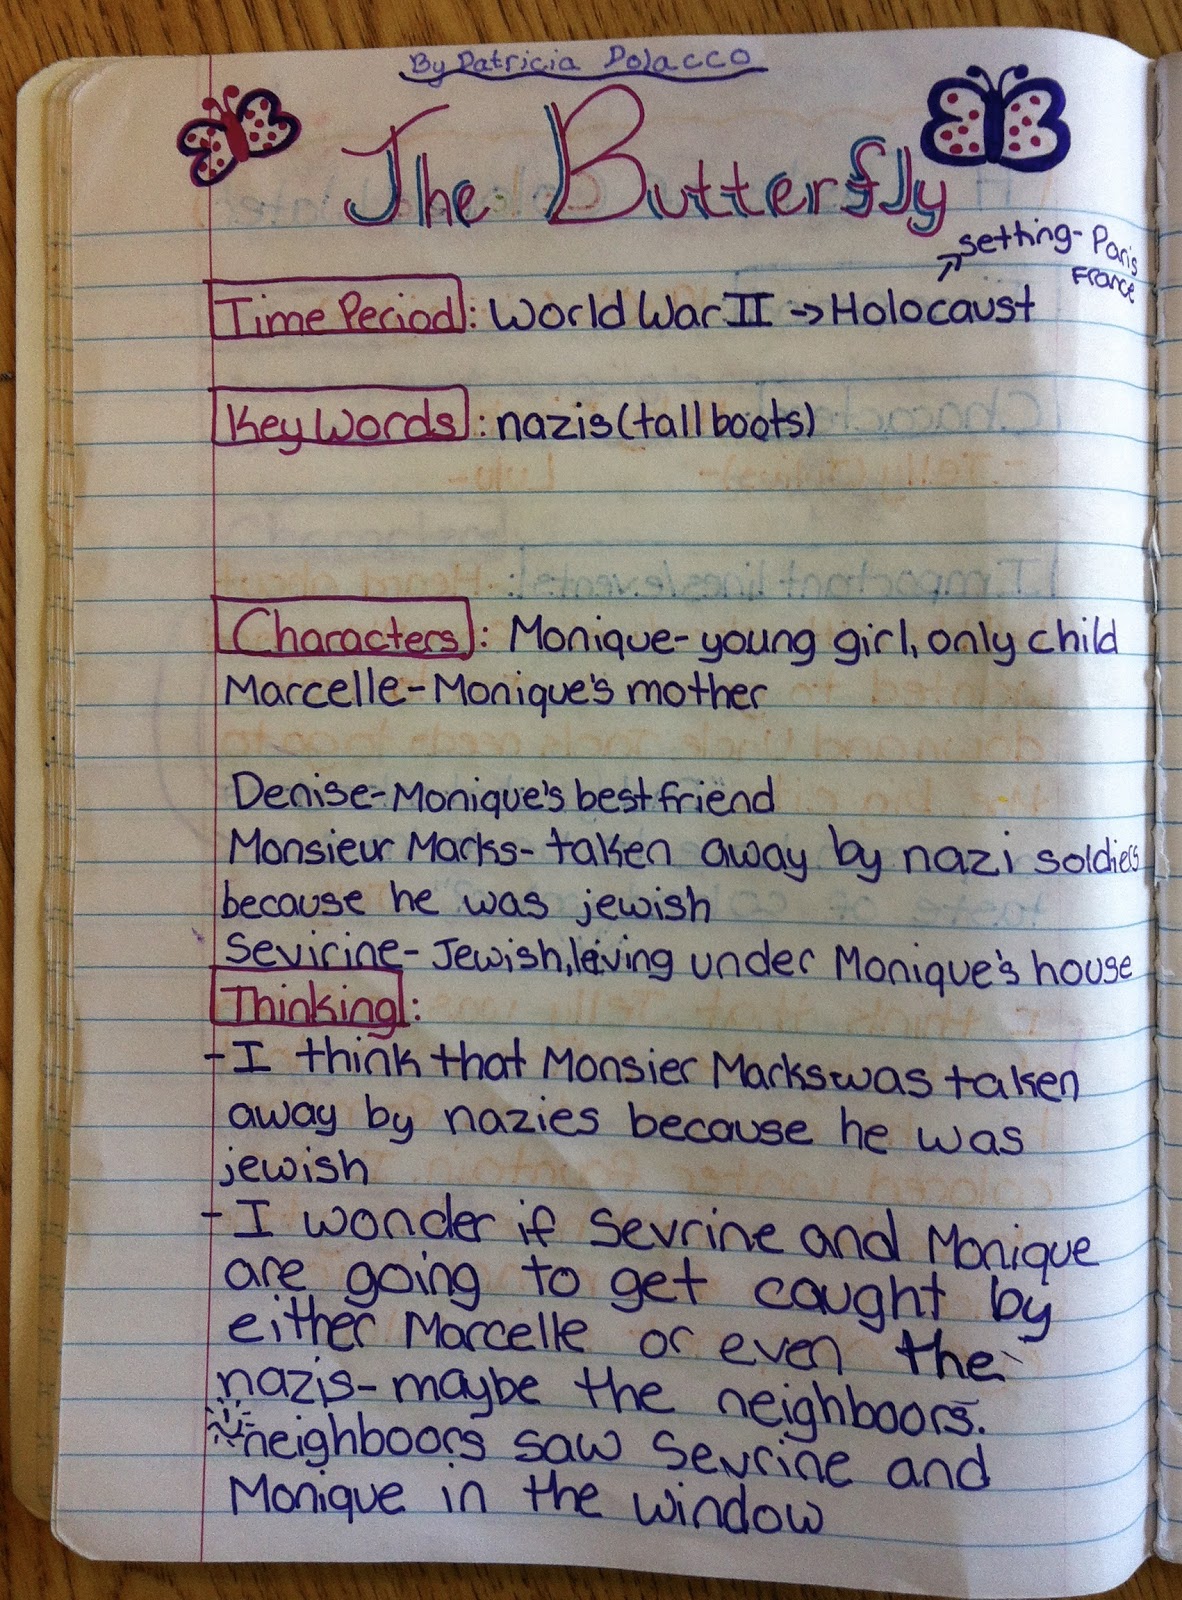 By Patricia Polacco
The Butterfly
setting- Paris
France
Time Period: World War II -> Holocaust
Key Words: nazis (tall boots)
Characters: Monique- young girl, only child
Marcelle- Monique's mother
Denise- Monique's best friend
Monsieur Marks- taken away by nazi soldiers
because he was jewish
Sevirine- Jewish, leiving under Monique's house
Thinking:
- I think that Monsier Marks was taken
away by nazies because he was
jewish
- I wonder if Sevrine and Monique
are going to get caught by
either Marcelle or even the
nazis- maybe the neighboors.
neighboors saw Sevrine and
Monique in the window